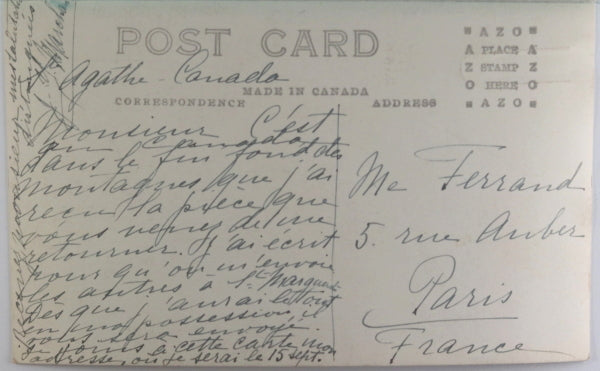 POST CARD
AZO
A PLACE A
Z STAMP Z
O HERE O
AZO
Agathe-Canada
MADE IN CANADA
CORRESPONDENCE
ADDRESS
Monsieur C'est
au Canada
dans le fin fond des
montagnes que j'ai
recu la pièce que
vous venez de me
retourner. J'ai écrit
pour qu'on m'envoie
les autres à Ste Marguerite
Des que j'aurai le tout
en ma possession, il
vous sera envoyé.
Je vous cette carte mon
adresse, où je serai le 15 sept.
Recevez Monsieur mes salutations
distinguées
Me Ferrand
5. rue Auber
Paris
France